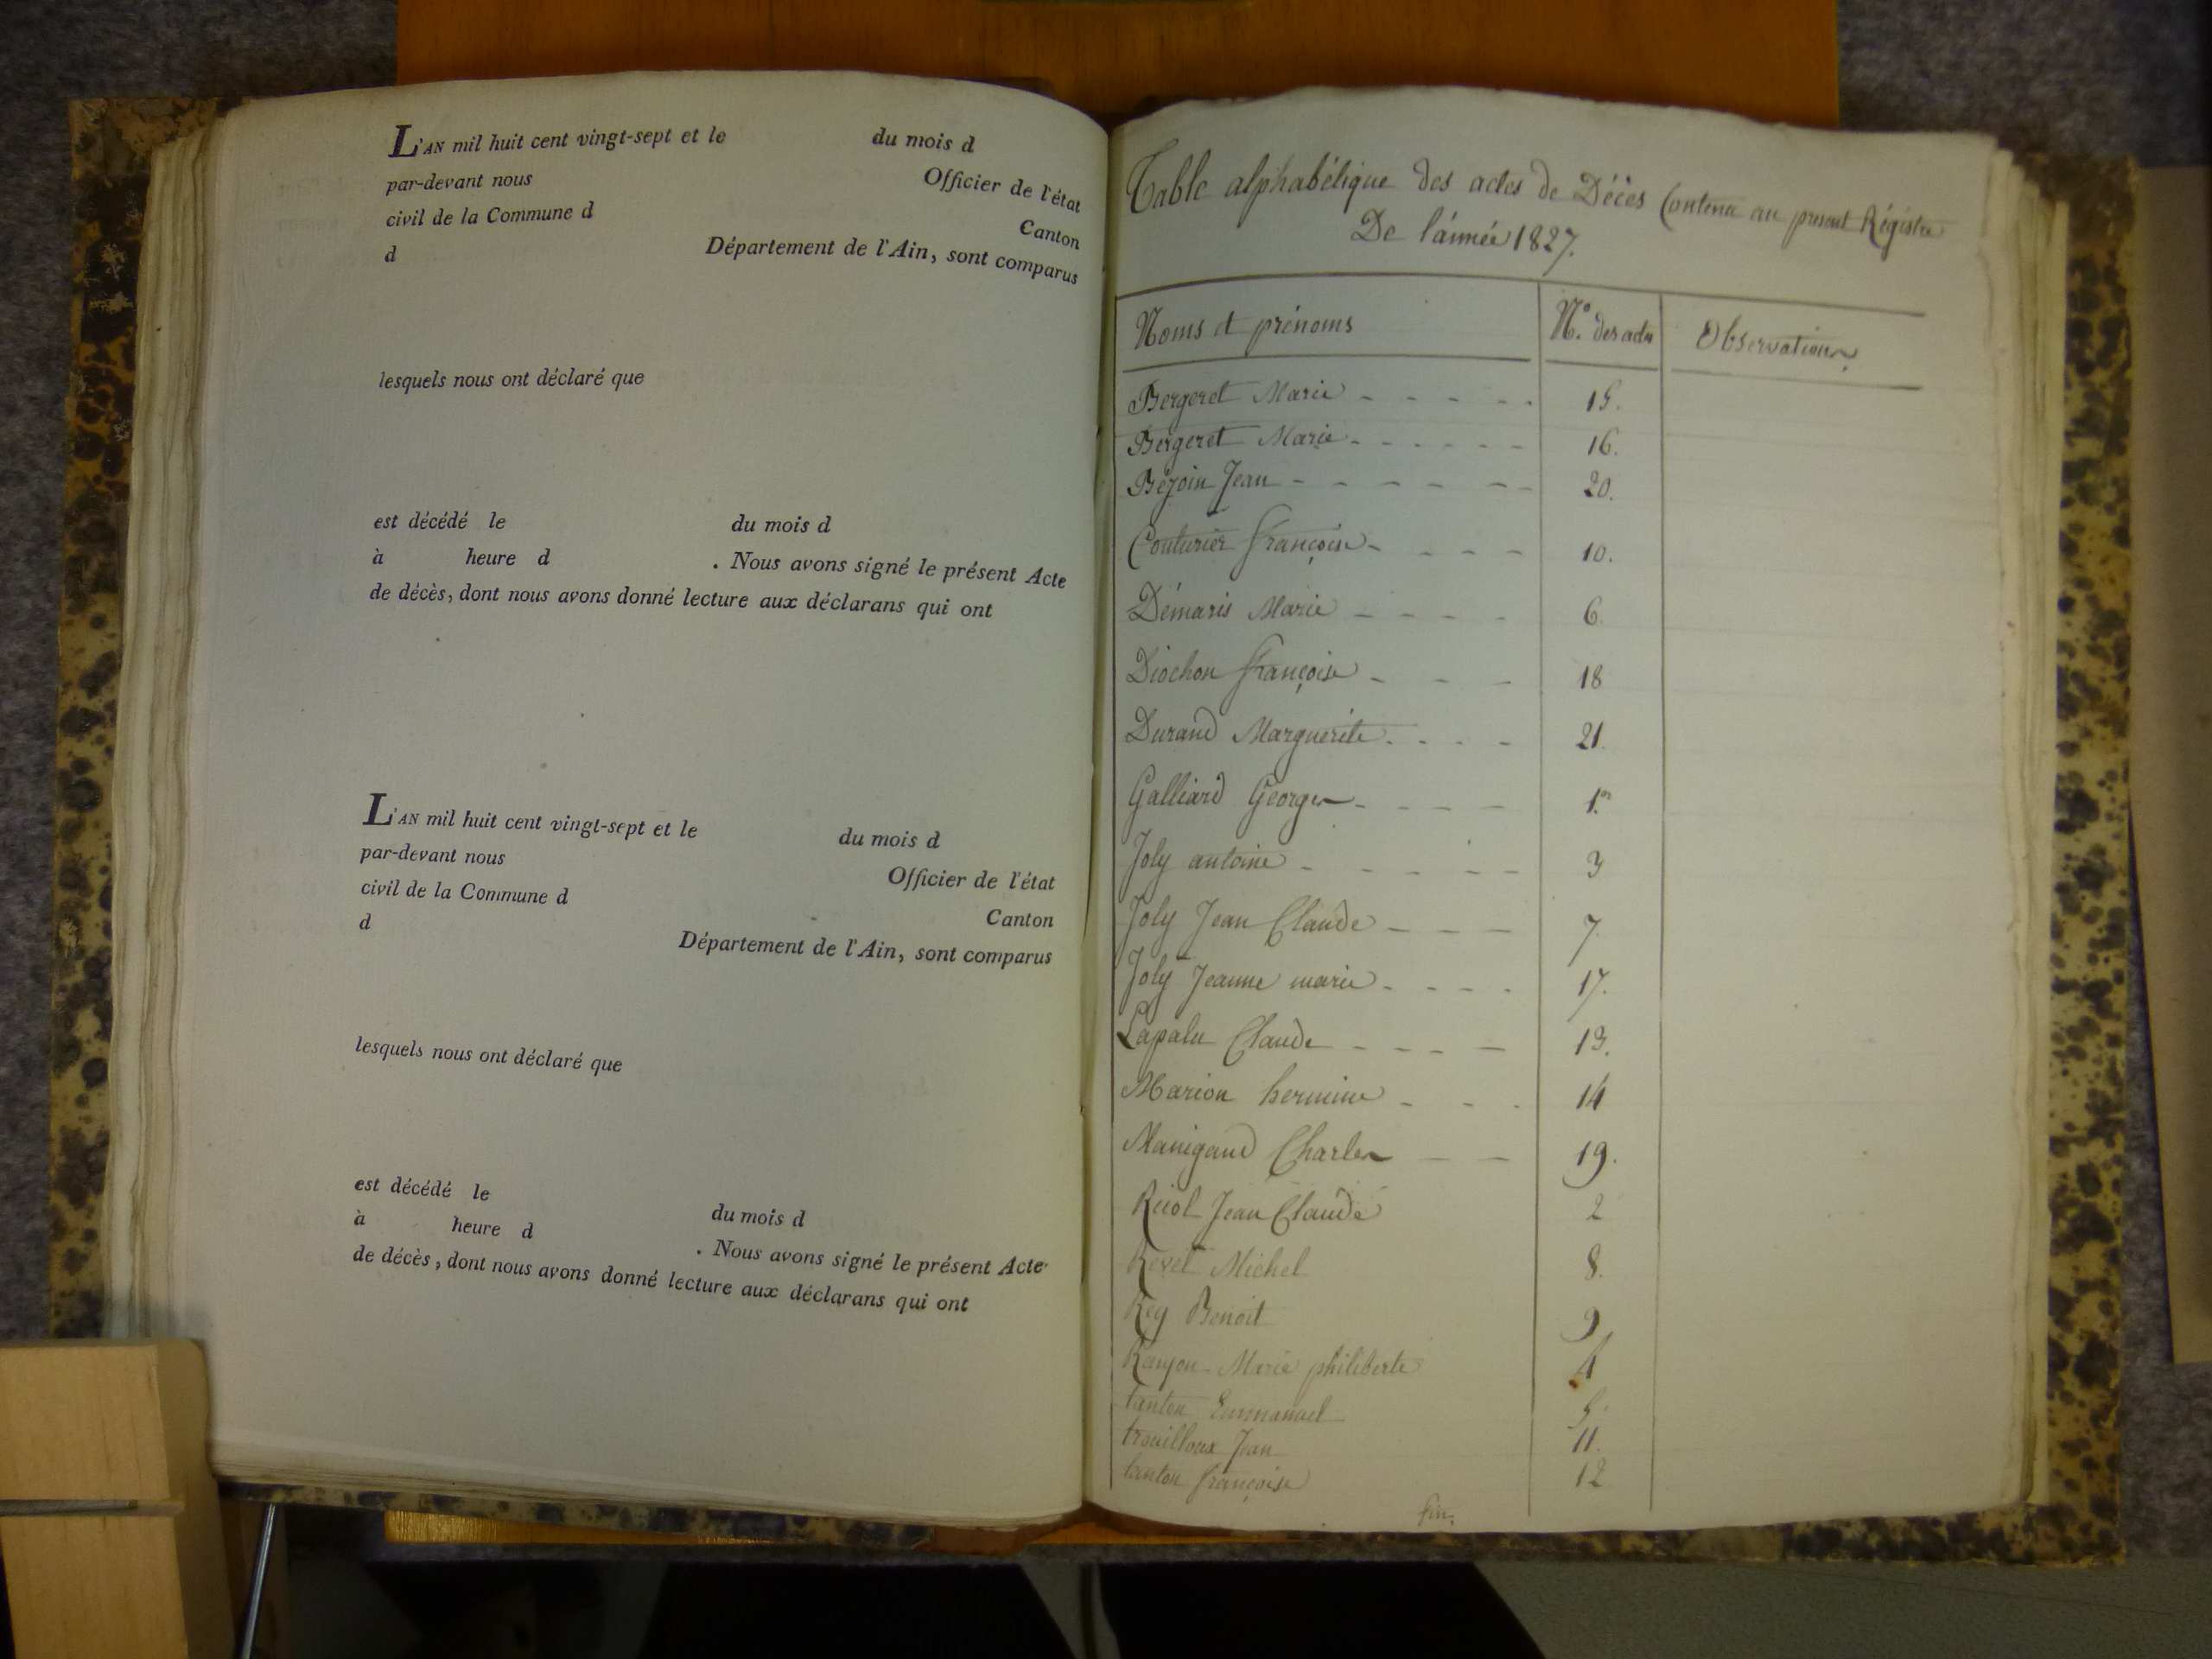 L'AN mil huit cent vingt-sept et le du mois d
par-devant nous Officier de l'état
civil de la Commune d Canton
d Département de l'Ain, sont comparus
lesquels nous ont déclaré que
est décédé le du mois d
à heure d . Nous avons signé le présent Acte
de décès, dont nous avons donné lecture aux déclarans qui ont
L'AN mil huit cent vingt-sept et le du mois d
par-devant nous Officier de l'état
civil de la Commune d Canton
d Département de l'Ain, sont comparus
lesquels nous ont déclaré que
est décédé le du mois d
à heure d . Nous avons signé le présent Acte
de décès, dont nous avons donné lecture aux déclarans qui ont
Table alphabétique des actes de Décès Contenu au present Régistre
De l'année 1827.
Noms et prénoms N.° des actes Observations
Bergeret Marie 15.
Bergeret Marie 16.
Bezoin Jean 20.
Couturier françoise 10.
Démaris Marie 6.
Diochon françoise 18
Durand Marguerite 21.
Galliard Georges 1.er
Joly antoine 3
Joly Jean Claude 7.
Joly Jeanne marie 17.
Lapalu Claude 13.
Marion hermine 14
Manigand Charles 19.
Ruol Jean Claude 2
Revel Michel 8.
Rey Benoit 9
Marie philiberte 4
tanton Emmanuel 5
trouilloux Jean 11.
tanton françoise 12
fin.